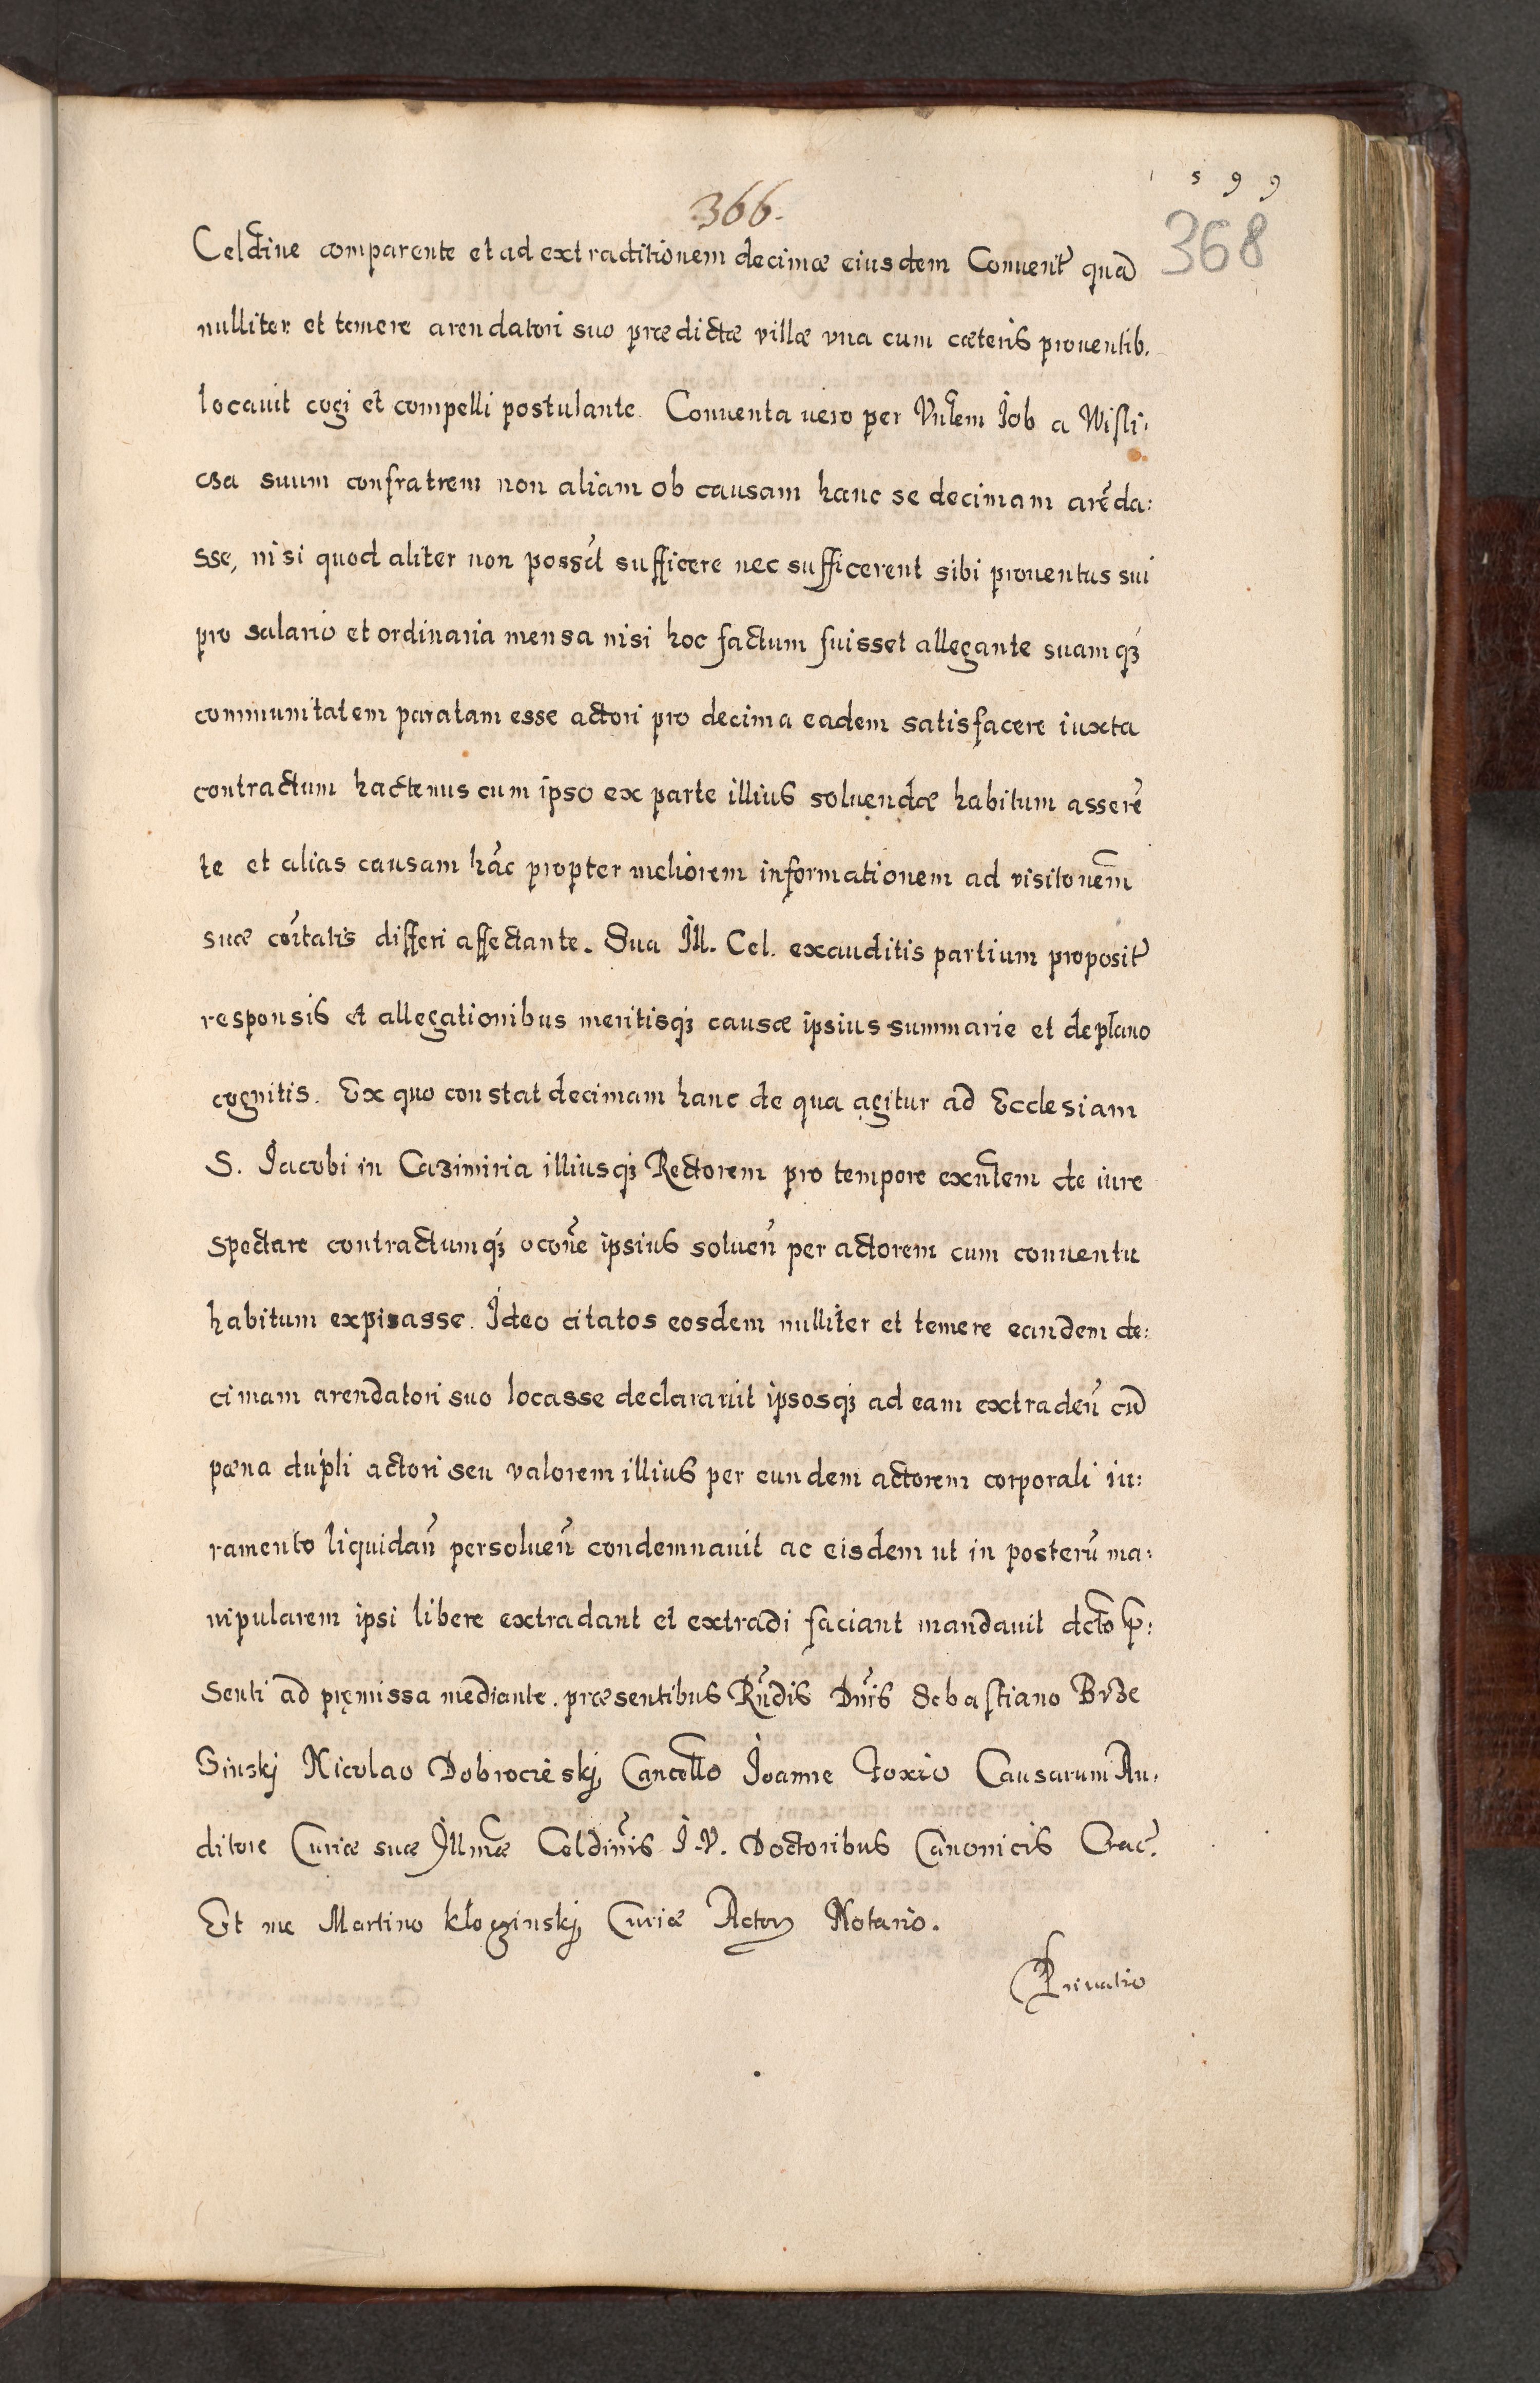 1599
366.
368
Celdine comparente et ad extraditionem decimæ eiusdem Convent' quā
nulliter et temere arendatori suo prædictæ villæ vna cum cæteris prouentib.
locauit cogi et compelli postulante. Conuenta uero per Vnlem Iob a Wisli:
cza suum confratrem non aliam ob causam hanc se decimam arēda:
sse, nisi quod aliter non posset sufficere nec sufficerent sibi prouentus sui
pro salario et ordinaria mensa nisi hoc factum fuisset allegante suamq3
communitatem paratam esse actori pro decima eadem satisfacere iuxta
contractum hactenus cum ipso ex parte illius soluendæ habitum asserē
te et alias causam hāc propter meliorem informationem ad visitonem
suæ coītatis differi affectante. Sua Ill. Cel. exauditis partium proposit'
responsis et allegationibus meritisq3 causæ ipsius summarie et de plano
cognitis. Ex quo constat decimam hanc de qua agitur ad Ecclesiam
S. Iacobi in Cazimiria illiusq3 Rectorem pro tempore exntem de iure
spectare contractumq3 oc̄one ipsius soluen̄ per actorem cum conuentu
habitum expirasse. Ideo citatos eosdem nulliter et temere eandem de:
cimam arendatori suo locasse declarauit ipsosq3 ad eam extraden̄ cū
pæna dupli actori seu valorem illius per eundem actorem corporali iu:
ramento liquidan̄ persoluen̄ condemnauit ac eisdem ut in posterū ma:
nipularem ipsi libere extradant et extradi faciant mandauit dcto p:
senti ad pręmissa mediante. præsentibus Rn̄dis Dn̄is Sebastiano Brze
Sinskj Nicolao Dobrocieskj, Cancello Ioanne Foxio Causarum Au:
ditore Curiæ suæ Illmæ Celdinis I. V. Doctoribus Canonicis Crac.
Et me Martino Kłoczinskj, Curiæ Actor3 Notario.
Priuatio